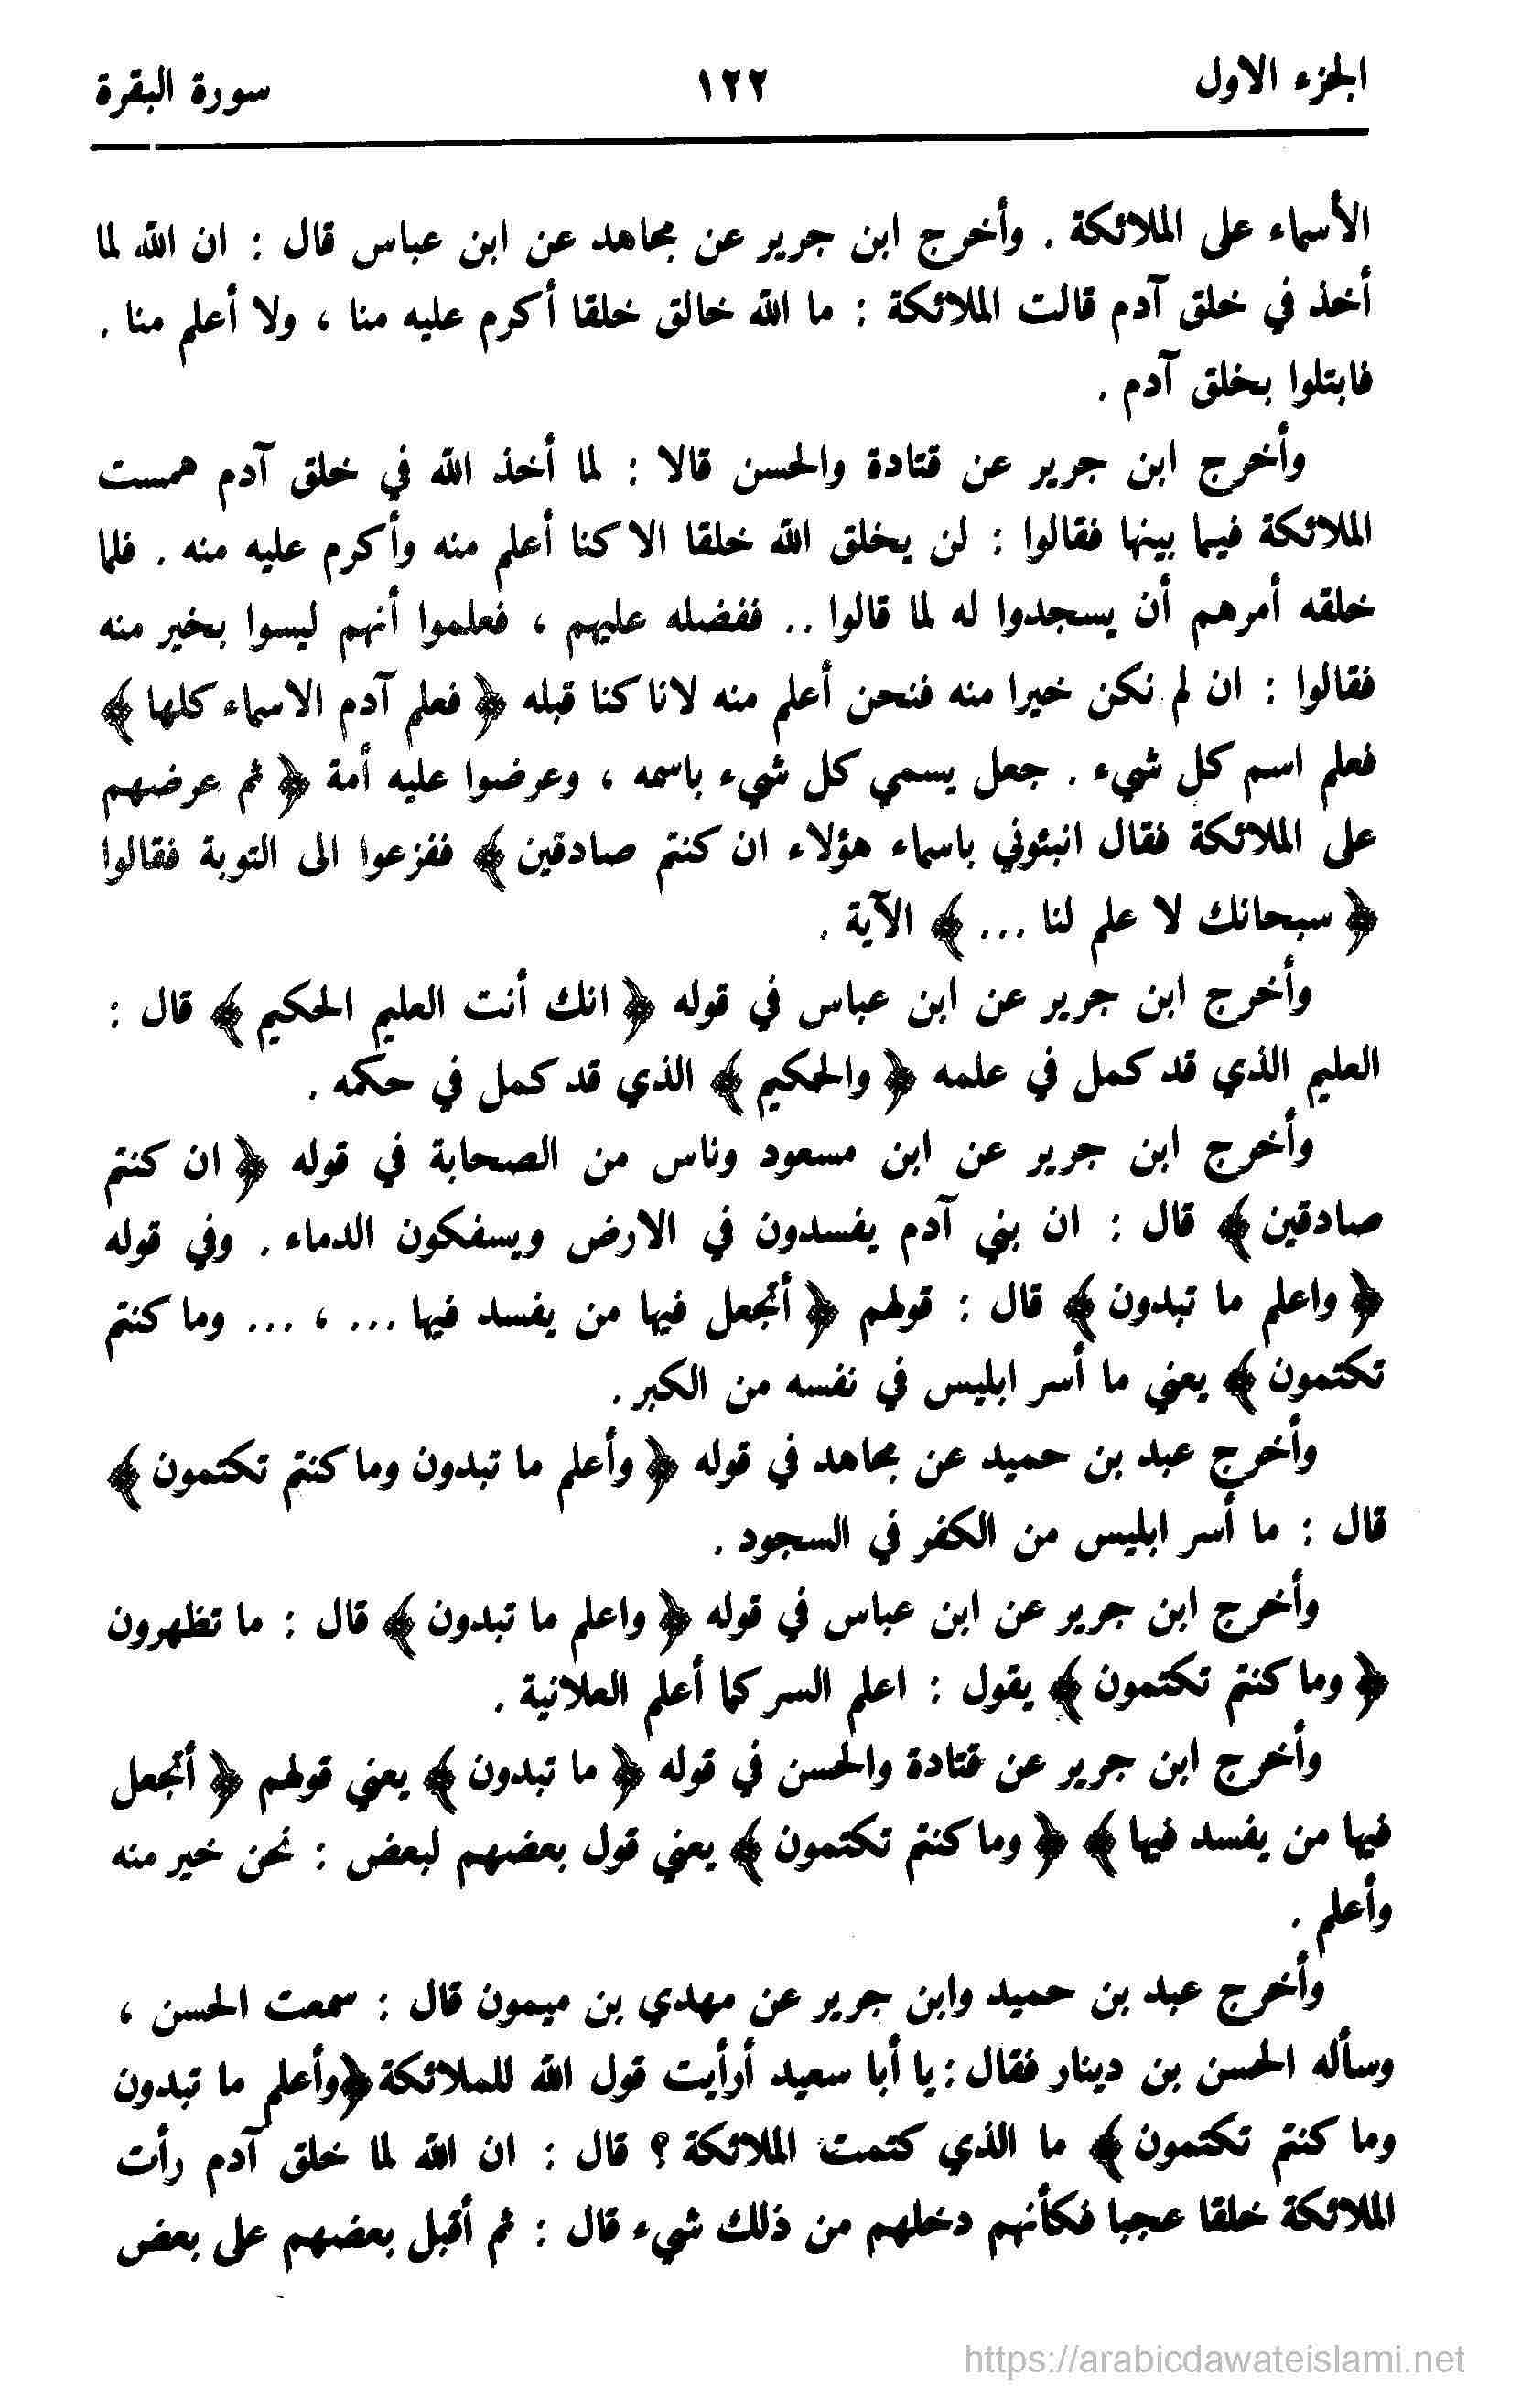 الجزء الاول ١٢٢ سورة البقرة
الأسماء على الملائكة . وأخرج ابن جرير عن مجاهد عن ابن عباس قال : ان الله لما
أخذ في خلق آدم قالت الملائكة : ما الله خالق خلقا أكرم عليه منا ، ولا أعلم منا .
فابتلوا بخلق آدم .
وأخرج ابن جرير عن قتادة والحسن قالا : لما أخذ الله في خلق آدم همست
الملائكة فيما بينها فقالوا : لن يخلق الله خلقا الا كنا أعلم منه وأكرم عليه منه . فلما
خلقه أمرهم أن يسجدوا له لما قالوا .. ففضله عليهم ، فعلموا أنهم ليسوا بخير منه
فقالوا : ان لم نكن خيرا منه فنحن أعلم منه لانا كنا قبله ﴿ فعلم آدم الاسماء كلها ﴾
فعلم اسم كل شيء . جعل يسمي كل شيء باسمه ، وعرضوا عليه أمة ﴿ ثم عرضهم
على الملائكة فقال انبئوني باسماء هؤلاء ان كنتم صادقين ﴾ ففزعوا الى التوبة فقالوا
﴿ سبحانك لا علم لنا ... ﴾ الآية .
وأخرج ابن جرير عن ابن عباس في قوله ﴿ انك أنت العليم الحكيم ﴾ قال :
العليم الذي قد كمل في علمه ﴿ والحكيم ﴾ الذي قد كمل في حكمه .
وأخرج ابن جرير عن ابن مسعود وناس من الصحابة في قوله ﴿ ان كنتم
صادقين ﴾ قال : ان بني آدم يفسدون في الارض ويسفكون الدماء . وفي قوله
﴿ واعلم ما تبدون ﴾ قال : قولهم ﴿ أتجعل فيها من يفسد فيها ... ، ... وما كنتم
تكتمون ﴾ يعني ما أسر ابليس في نفسه من الكبر .
وأخرج عبد بن حميد عن مجاهد في قوله ﴿ وأعلم ما تبدون وما كنتم تكتمون ﴾
قال : ما أسر ابليس من الكفر في السجود .
وأخرج ابن جرير عن ابن عباس في قوله ﴿ واعلم ما تبدون ﴾ قال : ما تظهرون
﴿ وما كنتم تكتمون ﴾ يقول : اعلم السر كما أعلم العلانية .
وأخرج ابن جرير عن قتادة والحسن في قوله ﴿ ما تبدون ﴾ يعني قولهم ﴿ أتجعل
فيها من يفسد فيها ﴾ ﴿ وما كنتم تكتمون ﴾ يعني قول بعضهم لبعض : نحن خير منه
وأعلم .
وأخرج عبد بن حميد وابن جرير عن مهدي بن ميمون قال : سمعت الحسن ،
وسأله الحسن بن دينار فقال : يا أبا سعيد أرأيت قول الله للملائكة ﴿وأعلم ما تبدون
وما كنتم تكتمون ﴾ ما الذي كتمت الملائكة ؟ قال : ان الله لما خلق آدم رأت
الملائكة خلقا عجبا فكأنهم دخلهم من ذلك شيء قال : ثم أقبل بعضهم على بعض
https://arabicdawateislami.net